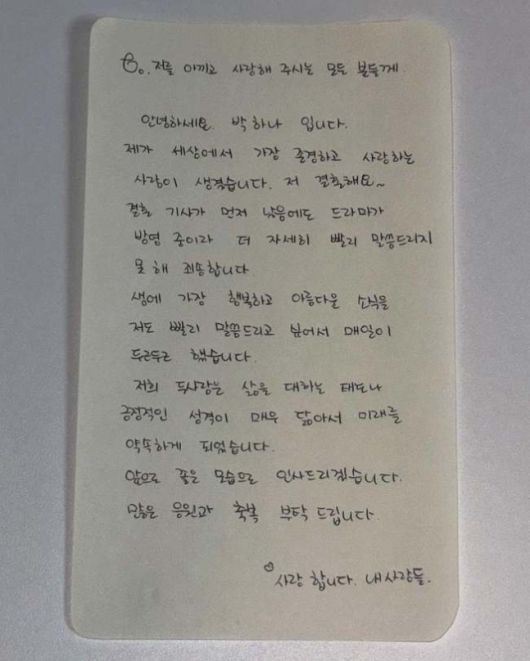 To. 저를 아끼고 사랑해 주시는 모든 분들께.
안녕하세요. 박하나 입니다.
제가 세상에서 가장 존경하고 사랑하는
사람이 생겼습니다. 저 결혼해요~
결혼 기사가 먼저 났음에도 드라마가
방영 중이라 더 자세히 빨리 말씀드리지
못 해 죄송합니다
생에 가장 행복하고 아름다운 소식을
저도 빨리 말씀드리고 싶어서 매일이
두근두근 했습니다.
저희 두사람은 삶을 대하는 태도나
긍정적인 성격이 매우 닮아서 미래를
약속하게 되었습니다.
앞으로 좋은 모습으로 인사드리겠습니다.
많은 응원과 축복 부탁 드립니다.
사랑 합니다. 내사람들.